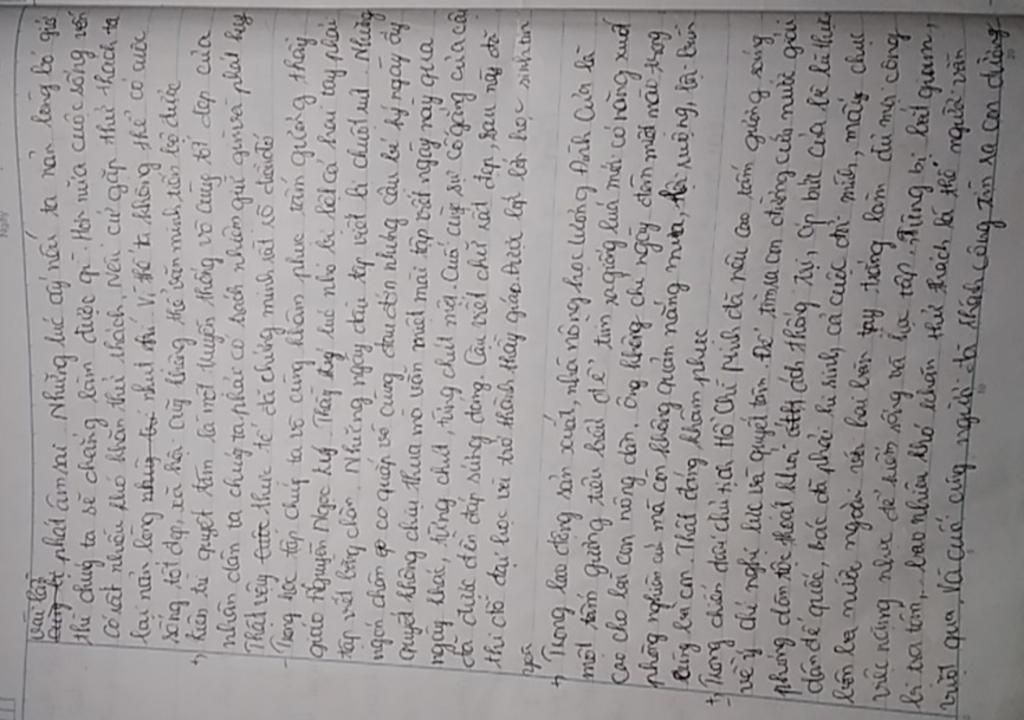 vấp lỗi
phát âm sai. Nhưng lúc ấy nếu ta nản lòng bỏ giữa
thì chúng ta sẽ chẳng làm được gì. Hơn nữa cuộc sống vốn
có rất nhiều khó khăn thử thách, Nếu cứ gặp thử thách ta
lại nản lòng nhụt chí. Vì thế ta không thể có cuộc
sống tốt đẹp, xã hội cũng không thể văn minh tiến bộ được
+, Kiên trì quyết tâm là một truyền thống vô cùng tốt đẹp của
nhân dân ta chúng ta phải có trách nhiệm giữ gìn và phát huy
Thật vậy thực tế đã chứng minh rất rõ điều đó
- Trong học tập chúng ta vô cùng khâm phục tấm gương thầy
giáo Nguyễn Ngọc Ký. Thầy Ký lúc nhỏ bị liệt cả hai tay phải
tập viết bằng chân. Những ngày đầu tập viết bị chuột rút. Những
ngón chân co quắp vô cùng đau đớn nhưng cậu bé Ký ngày ấy
Quyết không chịu thua mà vẫn miệt mài tập viết ngày này qua
ngày khác, từng chút, từng chút một. Cuối cùng sự cố gắng của cậu
đã được đền đáp xứng đáng. Cậu viết chữ rất đẹp, sau này đã
thi đỗ đại học và trở thành thầy giáo được học sinh tin
yêu
+, Trong lao động sản xuất, nhà nông học Lương Định Của là
một tấm gương tiêu biểu để tìm ra giống lúa mới có năng suất
cao cho bà con nông dân. Ông không chỉ ngày đêm miệt mài trong
phòng nghiên cứu mà còn không quản nắng mưa, ruộng, lội bùn
cùng bà con. Thật đáng khâm phục
+, - Trong chiến đấu chủ tịch Hồ Chí Minh đã nêu cao tấm gương sáng
về ý chí nghị lực và quyết tâm. Để tìm ra con đường cứu nước giải
phóng dân tộc thoát khỏi ách thống trị, áp bức của bè lũ thực
dân đế quốc, bác đã phải hi sinh cả cuộc đời mình, mấy chục
bôn ba nước ngoài với hai bàn tay trắng làm đủ mọi công
việc nặng nhọc để kiếm sống và học tập. Từng bị bắt giam,
bị tra tấn, bao nhiêu khó khăn thử thách là thế người vẫn
vượt qua. Và cuối cùng người đã thành công tìm ra con đường